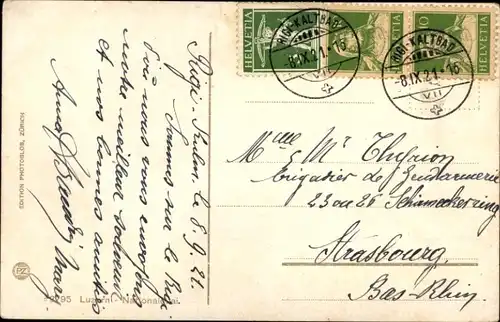 HELVETIA
HELVETIA
10
RIGI-KALTBAD
-8.IX.21.-16
VII
RIGI-KALTBAD
-8.IX.21.-16
VII
Rigi-Kulm, le 8.9.21.
Sommes sur le Rigi
d'où nous vous envoyons
notre meilleur
et nos bonnes amitiés
Mlle & Mr Therion
brigadier de Gendarmerie
23 ou 26 Schirmeckerring
Strasbourg
Bas-Rhin
EDITION PHOTOGLOB, ZÜRICH
PZ
Luzern - Nationalquai.